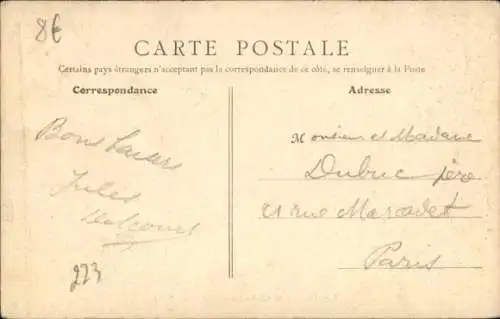 8€
CARTE POSTALE
Certains pays étrangers n'acceptant pas la correspondance de ce côté, se renseigner à la Poste
Correspondance
Adresse
Bons baisers
Jules
223
Monsieur et Madame
Dubuc père
21 rue Marcadet
Paris